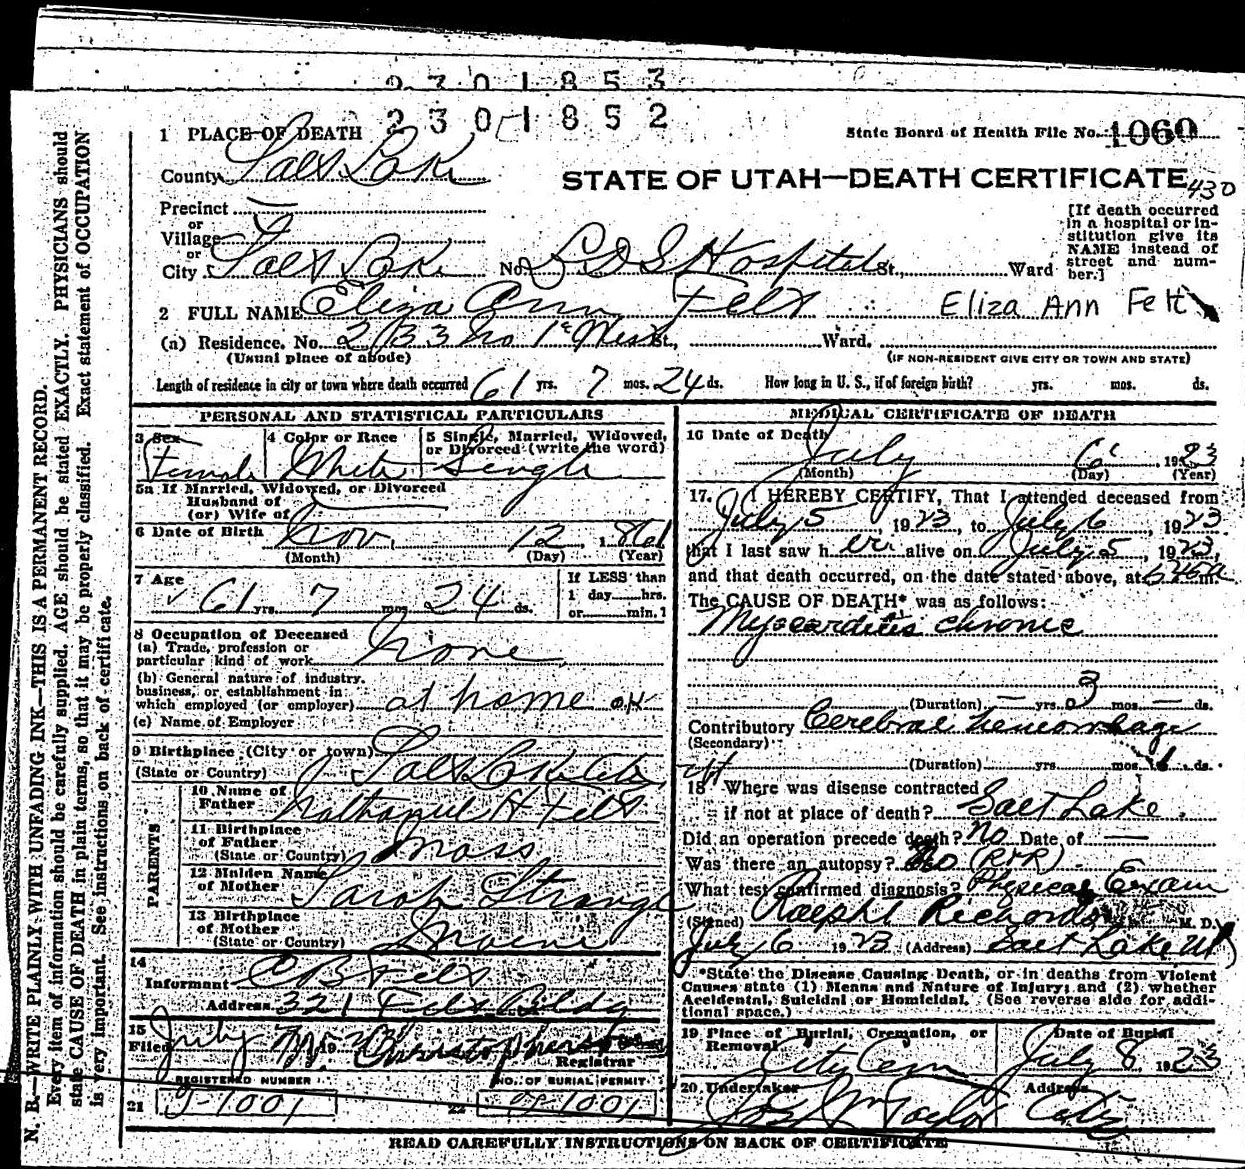 2301853
2301852
1 PLACE OF DEATH
State Board of Health File No. 1060
County Salt Lake
STATE OF UTAH—DEATH CERTIFICATE 430
Precinct
or
Village
or
City Salt Lake No. L D S Hospital St., Ward
[If death occurred in a hospital or in-
stitution give its
NAME instead of
street and num-
ber.]
2 FULL NAME Eliza Ann Felt Eliza Ann Felt
(a) Residence. No. 233 No 1st West St., Ward.
(Usual place of abode) (IF NON-RESIDENT GIVE CITY OR TOWN AND STATE)
Length of residence in city or town where death occurred 61 yrs. 7 mos. 24 ds. How long in U. S., if of foreign birth? yrs. mos. ds.
PERSONAL AND STATISTICAL PARTICULARS
3 Sex Female
4 Color or Race White
5 Single, Married, Widowed, or Divorced (write the word) Single
5a If Married, Widowed, or Divorced
Husband of
(or) Wife of
6 Date of Birth Nov. 12, 1861
(Month) (Day) (Year)
7 Age 61 yrs. 7 mos. 24 ds.
If LESS than
1 day hrs.
or min.?
8 Occupation of Deceased
(a) Trade, profession or
particular kind of work None
(b) General nature of industry,
business, or establishment in
which employed (or employer) at home OK
(c) Name of Employer
9 Birthplace (City or town) Salt Lake City
(State or Country)
PARENTS
10 Name of
Father Nathaniel H Felt
11 Birthplace
of Father
(State or Country) Mass
12 Maiden Name
of Mother Sarah Strange
13 Birthplace
of Mother
(State or Country) Maine
14
Informant C B Felt
Address 321 Felt Bldg
15
Filed July 19 Christopherson
Registrar
REGISTERED NUMBER NO. OF BURIAL PERMIT
21 J-1001 22 J-1001
MEDICAL CERTIFICATE OF DEATH
16 Date of Death
July 6 1923
(Month) (Day) (Year)
17. I HEREBY CERTIFY, That I attended deceased from
July 5 1923, to July 6, 1923
that I last saw her alive on July 5, 1923,
and that death occurred, on the date stated above, at m.
The CAUSE OF DEATH* was as follows:
Myocarditis chronic
(Duration) — yrs. 3 mos. — ds.
Contributory Cerebral hemorrhage
(Secondary)
(Duration) yrs. mos. 1 ds.
18 Where was disease contracted
if not at place of death? Salt Lake.
Did an operation precede death? No Date of —
Was there an autopsy? No (RTR)
What test confirmed diagnosis? Physical Exam
(Signed) Ralph T Richards M. D.
July 6 1923 (Address) Salt Lake Ut
*State the Disease Causing Death, or in deaths from Violent
Causes state (1) Means and Nature of Injury; and (2) whether
Accidental, Suicidal or Homicidal. (See reverse side for addi-
tional space.)
19 Place of Burial, Cremation, or Removal City Cem
Date of Burial July 8 1923
20 Undertaker Jos Wm Taylor
Address City
READ CAREFULLY INSTRUCTIONS ON BACK OF CERTIFICATE
N. B.—WRITE PLAINLY WITH UNFADING INK—THIS IS A PERMANENT RECORD.
Every item of information should be carefully supplied. AGE should be stated EXACTLY. PHYSICIANS should
state CAUSE OF DEATH in plain terms, so that it may be properly classified. Exact statement of OCCUPATION
is very important. See instructions on back of certificate.